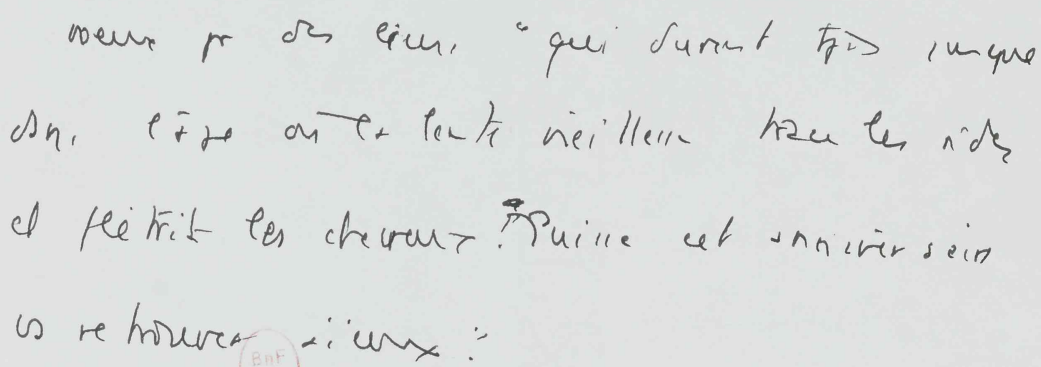 voeux pr des liens "qui durent tjs jusque
dns l'âge où la lente vieillesse trace les rides
et flétrit les cheveux". Puisse cet anniversaire
vs retrouver
BnF